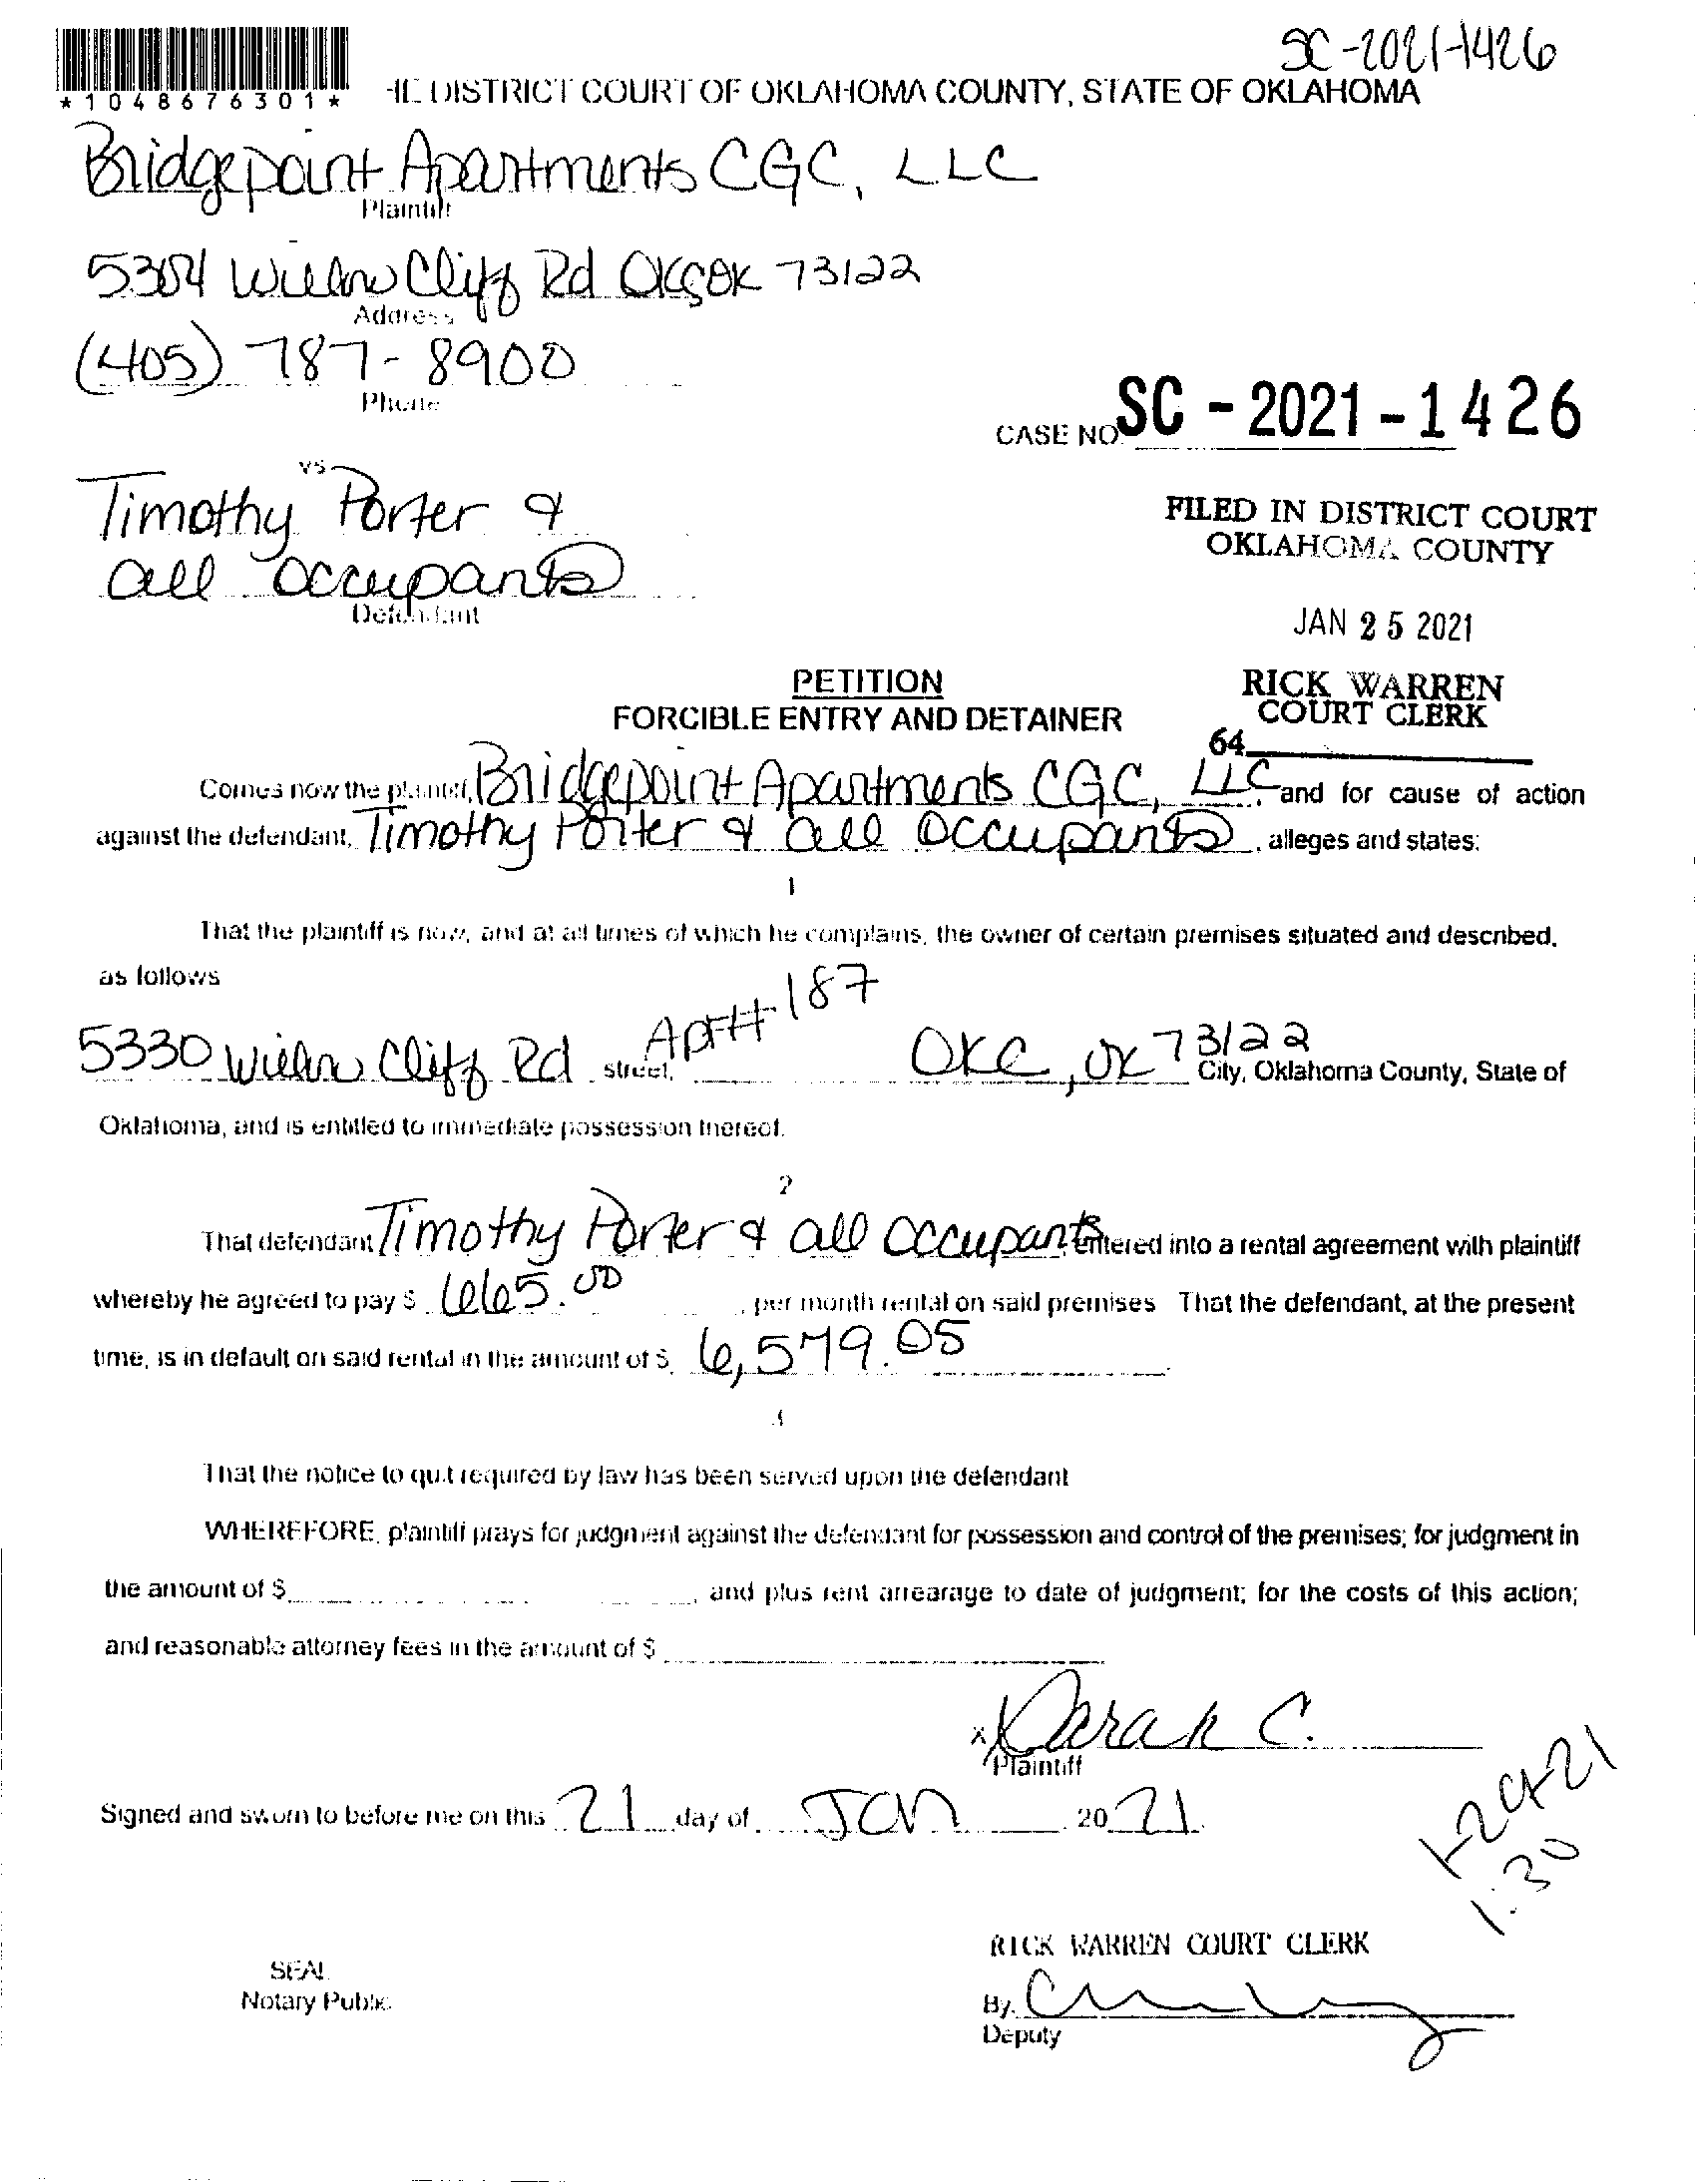 SC-2021-1426
*1048676301* HE DISTRICT COURT OF OKLAHOMA COUNTY, STATE OF OKLAHOMA
Bridgepoint Apartments CGC, LLC
Plaintiff
5304 Willow Cliff Rd OKC OK 73122
Address
(405) 787-8900
Phone
CASE NO. SC-2021-1426
vs
Timothy Porter &
all occupants
Defendant
FILED IN DISTRICT COURT
OKLAHOMA COUNTY
JAN 25 2021
RICK WARREN
COURT CLERK
64
PETITION
FORCIBLE ENTRY AND DETAINER
Comes now the plaintiff, Bridgepoint Apartments CGC, LLC, and for cause of action
against the defendant, Timothy Porter & all occupants, alleges and states:
1
That the plaintiff is now, and at all times of which he complains, the owner of certain premises situated and described,
as follows
5330 Willow Cliff Rd street, Apt# 187 OKC, OK 73122 City, Oklahoma County, State of
Oklahoma, and is entitled to immediate possession thereof.
2
That defendant Timothy Porter & all occupants entered into a rental agreement with plaintiff
whereby he agreed to pay $ 665.00 per month rental on said premises That the defendant, at the present
time, is in default on said rental in the amount of $ 6,579.05
3
That the notice to quit required by law has been served upon the defendant
WHEREFORE, plaintiff prays for judgment against the defendant for possession and control of the premises; for judgment in
the amount of $ , and plus rent arrearage to date of judgment; for the costs of this action;
and reasonable attorney fees in the amount of $
x Darah C.
Plaintiff
Signed and sworn to before me on this 21 day of Jan 20 21
1:30
SEAL
Notary Public
RICK WARREN COURT CLERK
By.
Deputy